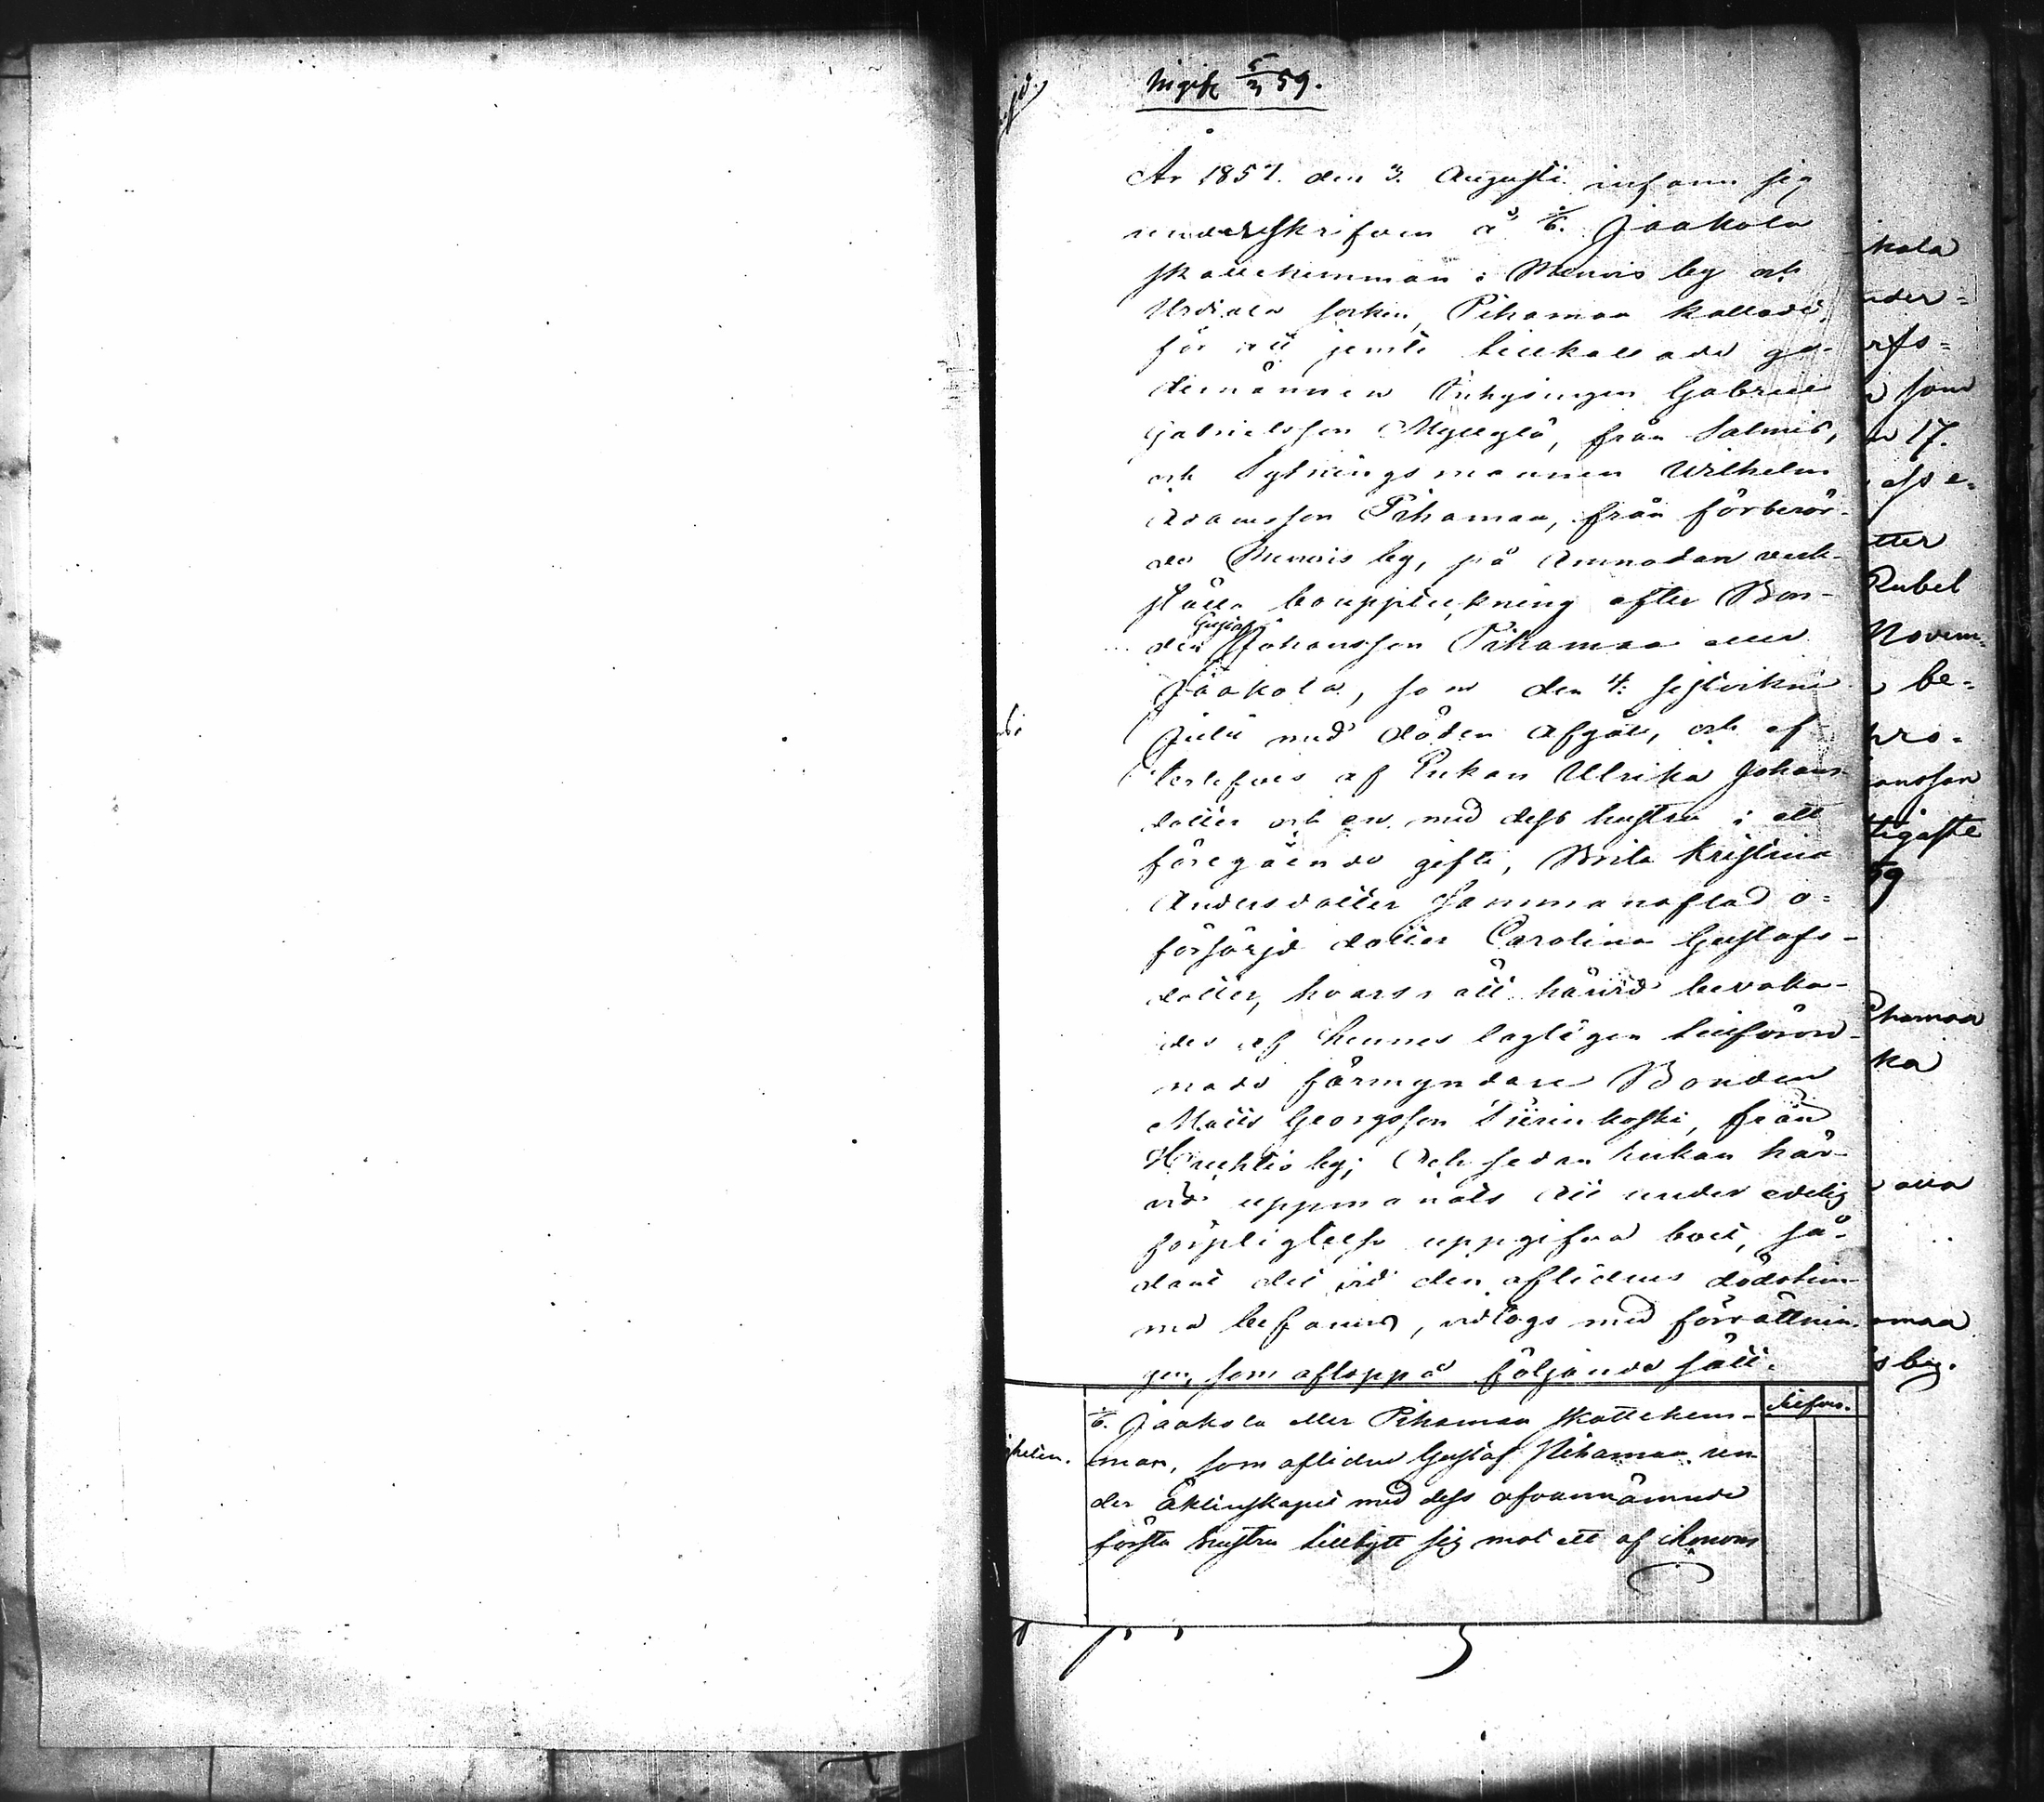 Ingif. 5/3 59.
År 1857. den 3. Augusti infann sig
underskrifven å 1/6. Jaakola
skattehemman i Menois by och
Urdiala socken, Pihamaa kallade,
för att jemte tillkallade go-
demännen Inhysingen Gabriel
Gabrielsson Myllylä, från Salmis,
och Sytningsmannen Wilhelm
Adamsson Pihamaa, från förberör-
de Menois by, på Amnodan verk-
ställa bouppteckning efter Bon-
den Gustaf Johansson Pihamaa eller
Jaakola, som den 4: sistvikne
Julii med döden afgått, och ef-
terlefves af Enkan Ulrika Johans-
dotter och en med dess hustru i ett
föregående gifte, Brita Kristina
Andersdotter sammanaflad o-
försörjd dotter Carolina Gustafs-
dotter, hvars rätt härvid bevaka-
des af hennes lagligen tillförord-
nade förmyndare Bonden
Matts Georgsson Tiirinkoski, från
Huhtis by; Och sedan Enkan här-
vid uppmanats att under edelig
förpligtelse uppgifva boet, så-
dant det vid den aflidnes dödstim-
ma befanns, vidtogs med förrättnin-
gen, som aflopp å följande sätt.
1/6. Jaakola eller Pihamaa skattehem-
man, som aflidne Gustaf Pihamaa un-
der äktenskapet med dess ofvannämnde
första hustru tillbytt sig mot ett af
kala
nder=
rfs=
som
17.
tter
Rubel
Novem=
be=
pro=
ansson
tigaste
59
ihamaa
ka
amaa
s by.